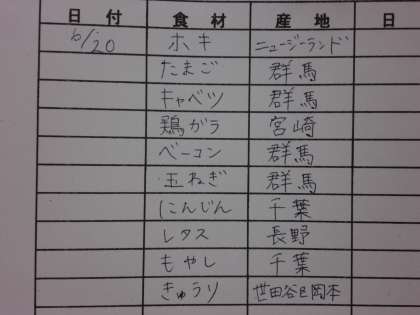 日付 食材 産地 日
10/20 ホキ ニュージーランド
たまご 群馬
キャベツ 群馬
鶏ガラ 宮崎
ベーコン 群馬
玉ねぎ 群馬
にんじん 千葉
レタス 長野
もやし 千葉
きゅうり 世田谷区岡本